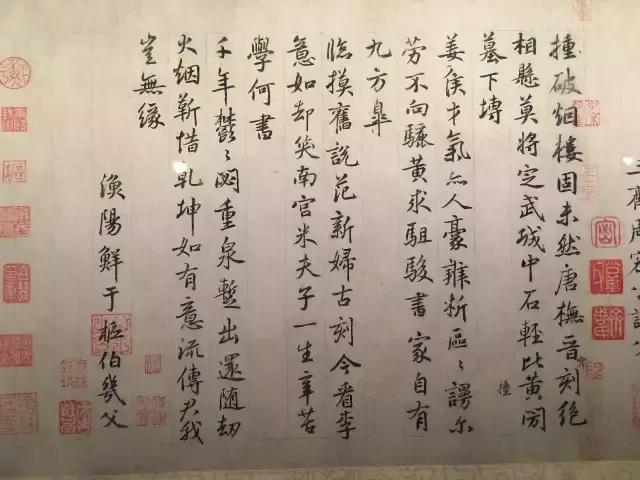 捶破烟樓固未然唐橅晉刻絶
相懸莫將定武城中石輕比黄閍
撞
墓下塼
姜侯才氣亦人豪辨析區〻謾尔
勞不向驪黄求駔駿書家自有
九方臯
臨摸舊說范新婦古刻今看李
意如却笑南宫米夫子一生辛苦
學何書
千年鬱〻閟重泉暫出還随劫
火烟靳惜乾坤如有意流傳尔我
豈無緣
漁陽鮮于樞伯幾父